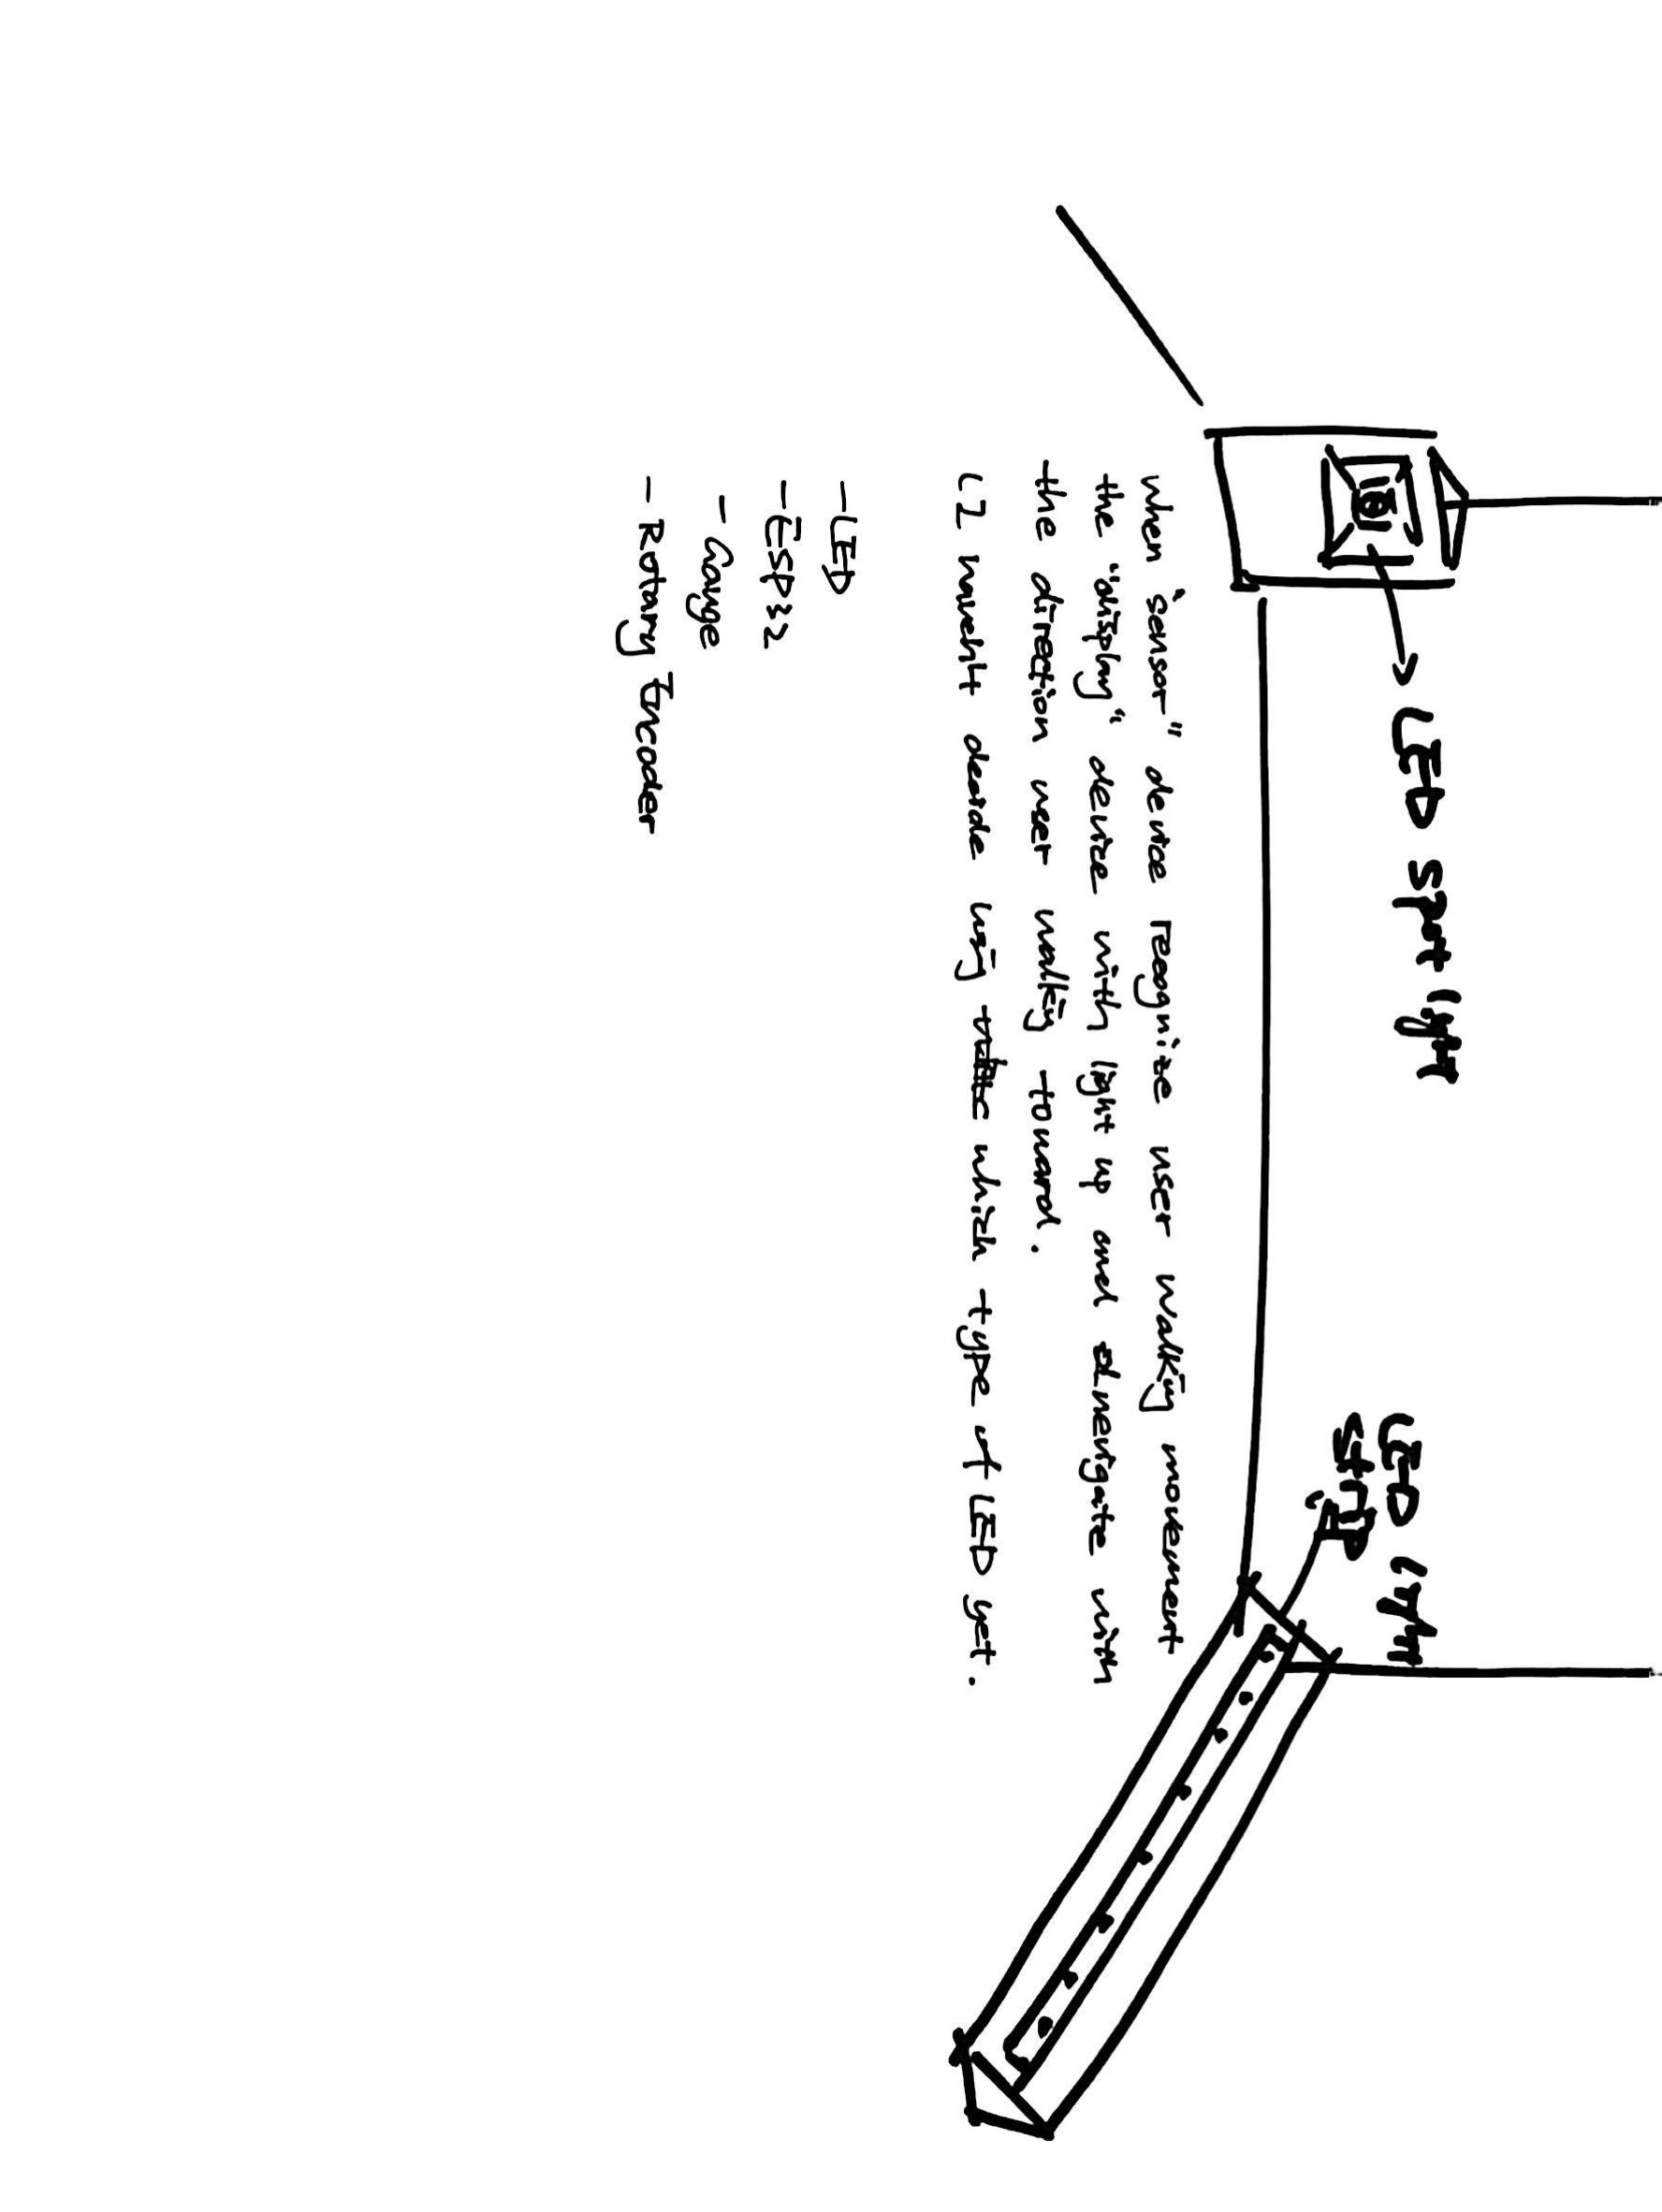 LED spot light
LED light
strip
when "sensor" device recognize user walking movement
the "display" device with light up and
the direction user walking toward.
(I didn't decide using which type of LED yet.
- LED
- ESP32
- Gauge
- Rotary Encoder